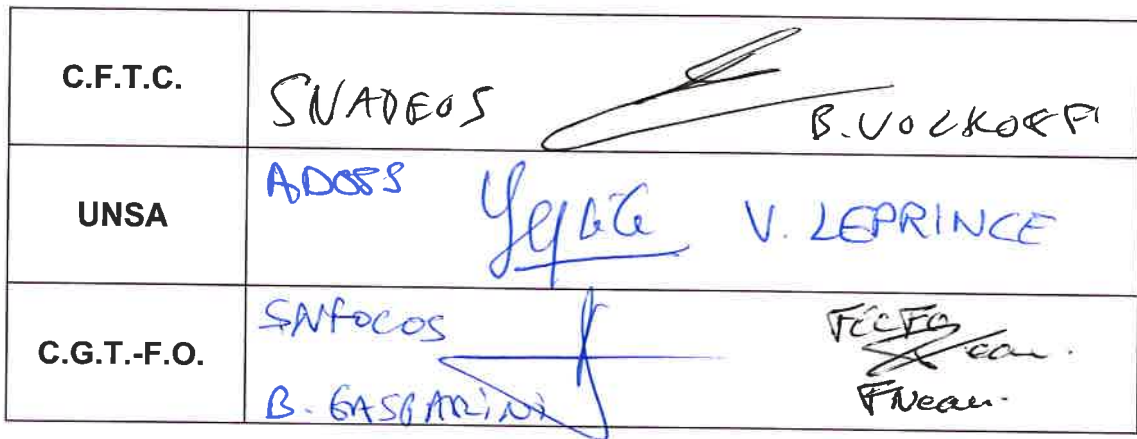 C.F.T.C.
SNADEOS B. VOLKOFF
UNSA
ADOSS
V. LEPRINCE
C.G.T.-F.O.
SNFOCOS
B. GASPARINI